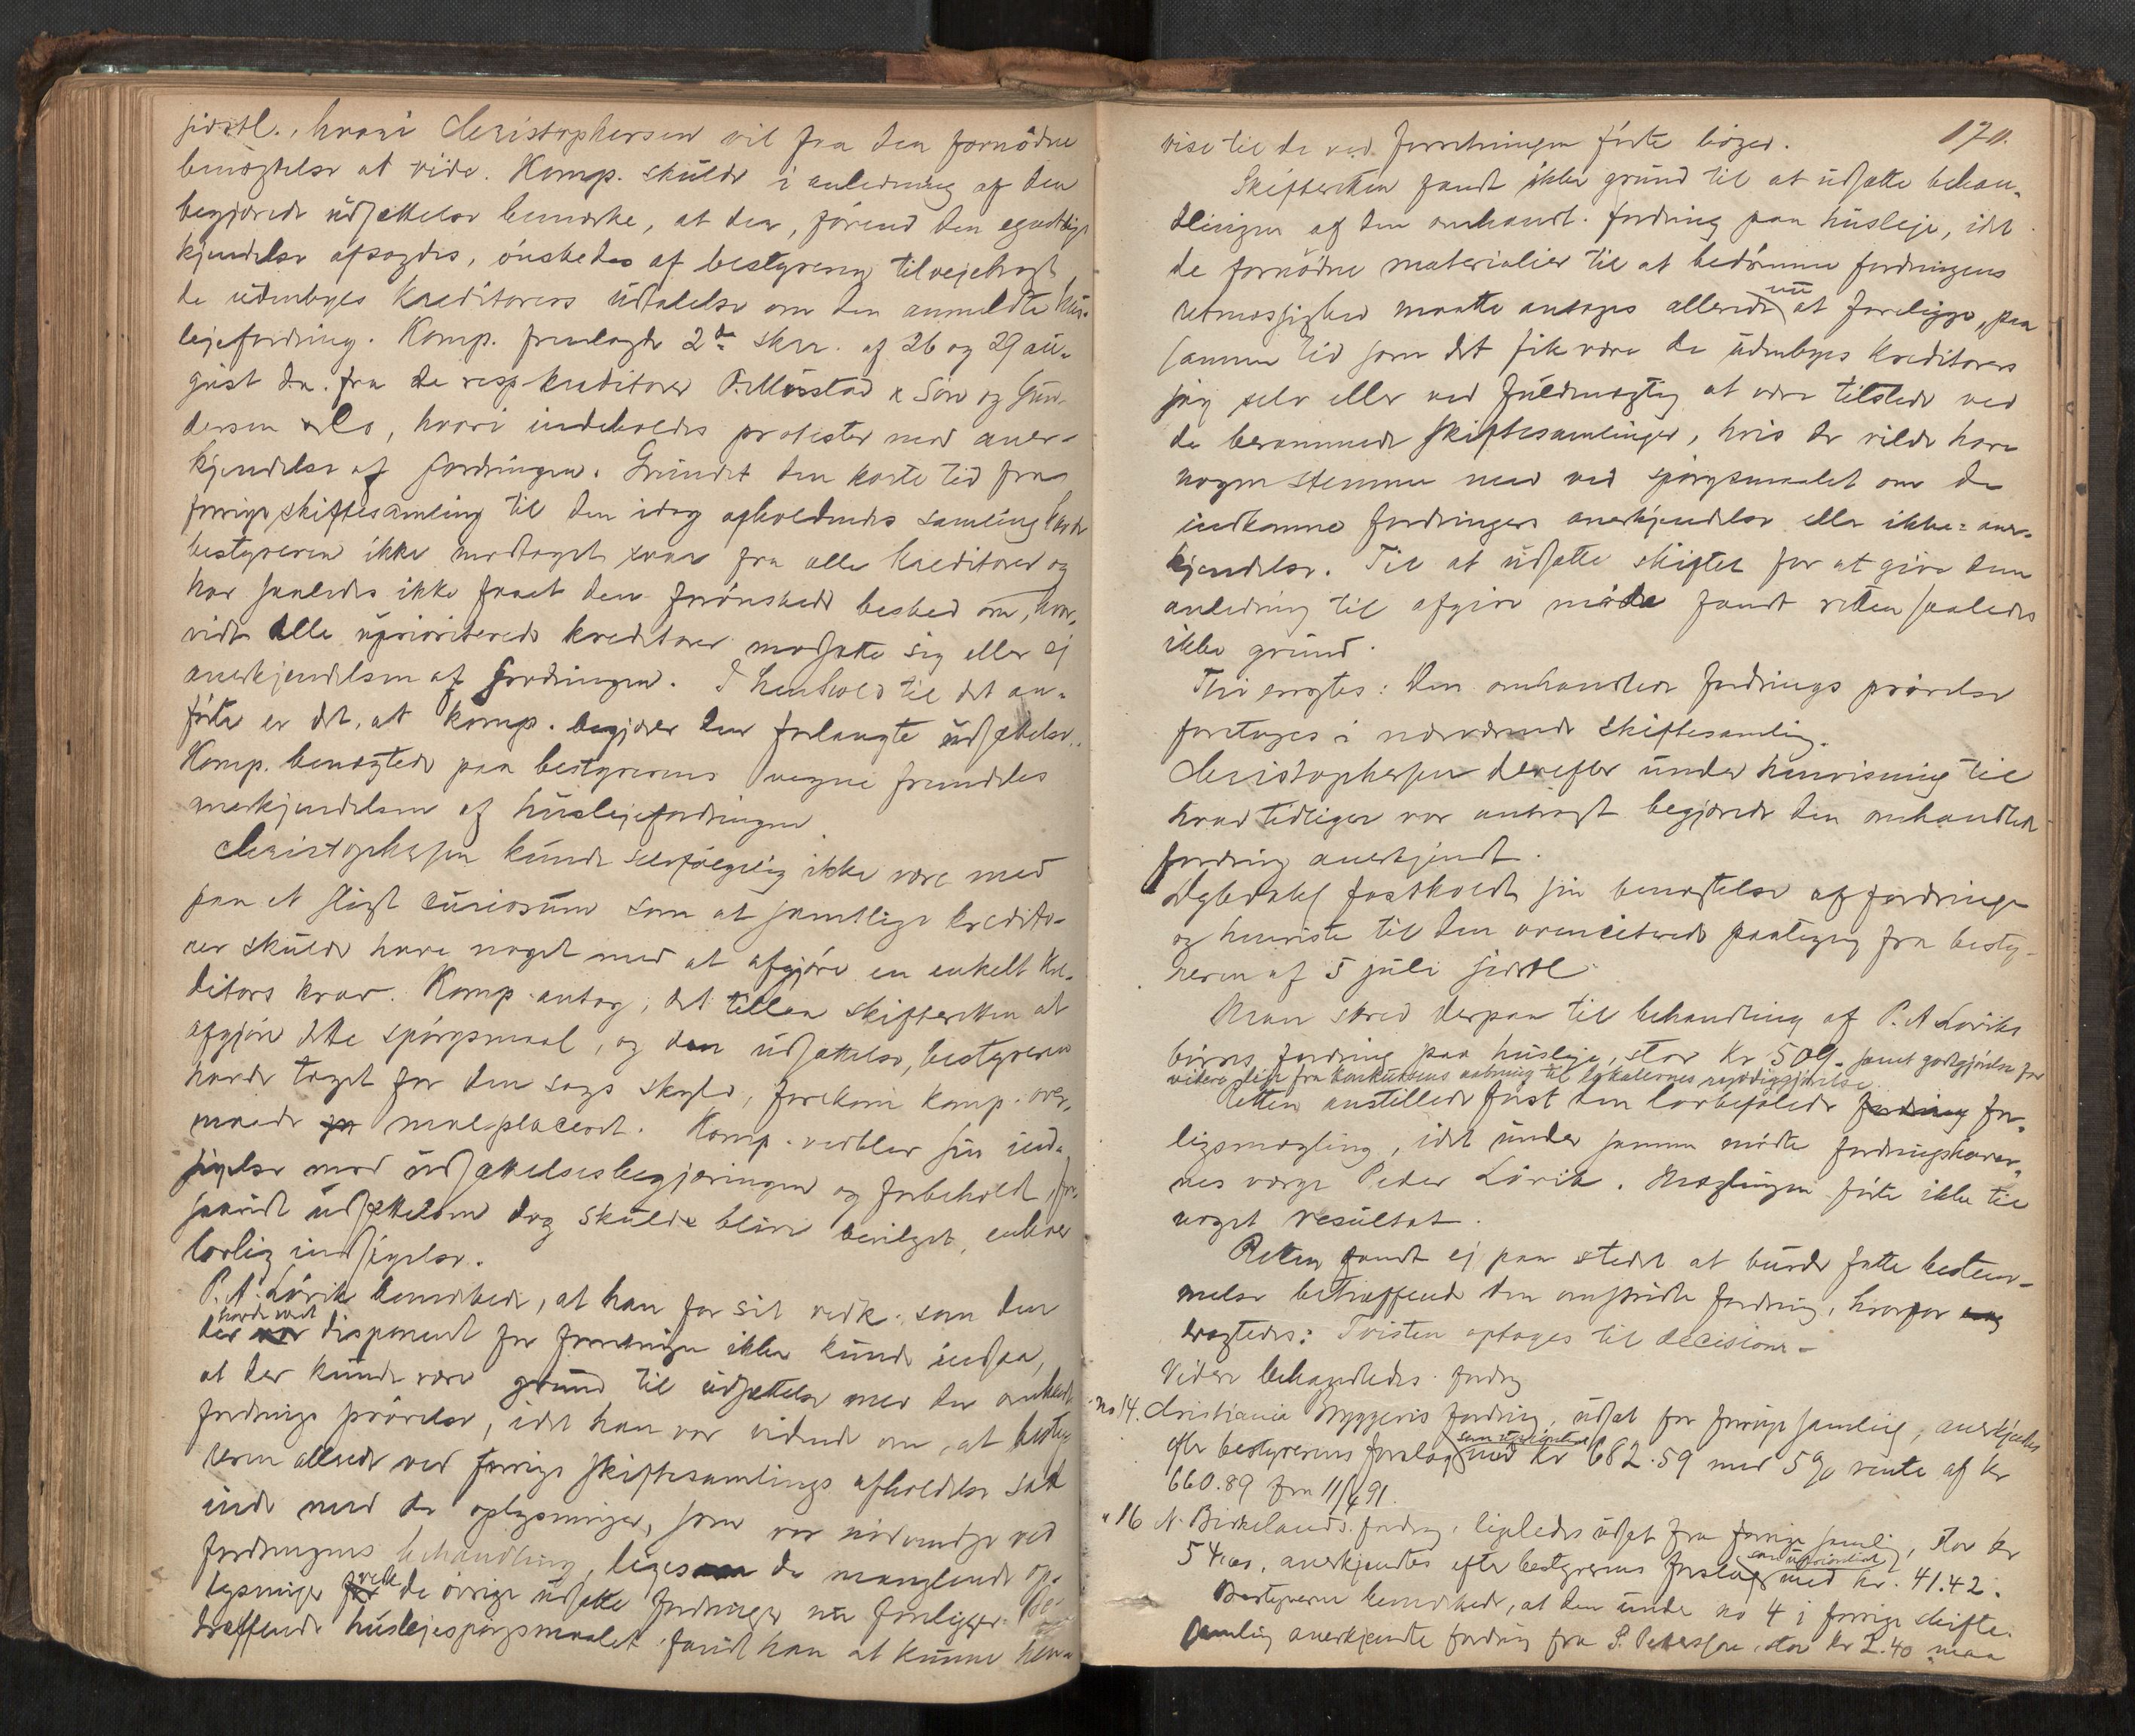 sidstl., hvori Christophersen vil faa den fornödne
benægtelse at vide. Komp. skulde i anledning af den
begjærede udsættelse bemærke, at der, förend den egentlige
kjendelse afsagdes, önskedes af bestyreren tilvejebragt
de udenbyes kreditorers udtalelse om den anmeldte hus-
lejefordring. Komp. fremlagde 2de skr. af 26 og 29 au-
gust d.a. fra de resp. kreditorer O. Mustad & Sön og Gun-
dersen & Co, hvori indeholdes protester mod aner-
kjendelse af fordringen. Grundet den korte tid fra
forrige skiftesamling til den idag afholdendes samling havde
bestyreren ikke modtaget svar fra alle kreditorer og
har saaledes ikke faaet den forönskede besked om, hvor-
vidt alle uprioriterede kreditorer modsatte sig eller ej
anerkjendelsen af fordringen. I henhold til det an-
förte er det, at komp. begjærer den forlangte udsættelse.
Komp. benægtede paa bestyrerens vegne fremdeles
anerkjendelsen af huslejefordringen.
Christophersen kunde selvfölgelig ikke være med
paa et sligt curiosum som at samtlige kredito-
rer skulde have noget med at afgjöre en enkelt kre-
ditors krav. Komp. antog, det tillaa skifteretten at
afgjöre dette spörgsmaal, og den udsættelse, bestyreren
havde taget for den sags skyld, forekom komp. over-
maade malplaceret. Komp. vedblev sin ind-
sigelse mod udsættelsesbegjæringen og forbeholdt, for-
saavidt udsættelsen dog skulde blive bevilget, enhver
lovlig indsigelse.
P. A. Lövik bemærkede, at han for sit vedk. som den
der havde været disponent for forretningen ikke kunde indse,
at der kunde være grund til udsættelse med den omhandl.
fordrings prövelse, idet han var vidende om, at besty-
reren allerede ved forrige skiftesamlings afholdelse sad
inde med de oplysninger, som var nödvendige ved
fordringens behandling, ligesom de manglende op-
lysninger vedr. de övrige udsatte fordringer nu foreligger. Be-
træffende huslejespörgsmaalet fandt han at kunne hen-
170.
vise til de ved forretningen förte böger.
Skifteretten fandt ikke grund til at udsætte behan-
dlingen af den omhandl. fordring paa husleje, idet
de fornödne materialier til at bedömme fordringens
retmæssighed maatte antages allerede nu at foreligge, paa
samme tid som det fik være de udenbyes kreditorers
sag selv eller ved fuldmægtig at være tilstede ved
de berammede skiftesamlinger, hvis de vilde have
nogen stemme med ved spörgsmaalet om de
indkomne fordringers anerkjendelse eller ikke-aner-
kjendelse. Til at udsætte skiftet for at give dem
anledning til at give möde fandt retten saaledes
ikke grund.
Thi eragtes: Den omhandlede fordrings prövelse
foretages i nærværende skiftesamling.
Christophersen derefter under henvisning til
hvad tidligere var anbragt begjærede den omhandlede
fordring anerkjendt.
Dybdahl fastholdt sin benægtelse af fordringen
og henviste til den ovenciterede paategning fra besty-
reren af 5 juli sidstl.
Man skred derpaa til behandling af P. A. Löviks
börns fordring paa husleje, stor kr 509. samt godtgjörelse for
videre leje fra konkursens aabning til lokalernes ryddiggjörelse.
Retten anstillede först den lovbefalede for-
ligsmægling, idet under samme mödte fordringshaver-
nes værge Peder Lövik. Mæglingen förte ikke til
noget resultat.
Retten fandt ej paa stedet at burde fatte bestem-
melse betræffende den omstridte fordring, hvorfor
eragtedes: Tvisten optages til decision.
Videre behandledes fordrg
No 14. Christiania Bryggeris fordring, udsat fra forrige samling, anerkjendtes
efter bestyrerens forslag som uprioriteret med kr 682.59 med 5% rente af kr
660.89 fra 11/6 91.
" 16 N. Birkelands fordring, ligeledes udsat fra forrige samling, stor kr
54.00, anerkjendtes efter bestyrerens forslag som uprioriteret med kr. 41.42.
Bestyreren bemærkede, at den under no 4 i forrige skifte-
samling anerkjendte fordring fra S. Petersen, stor kr 2.40 maa